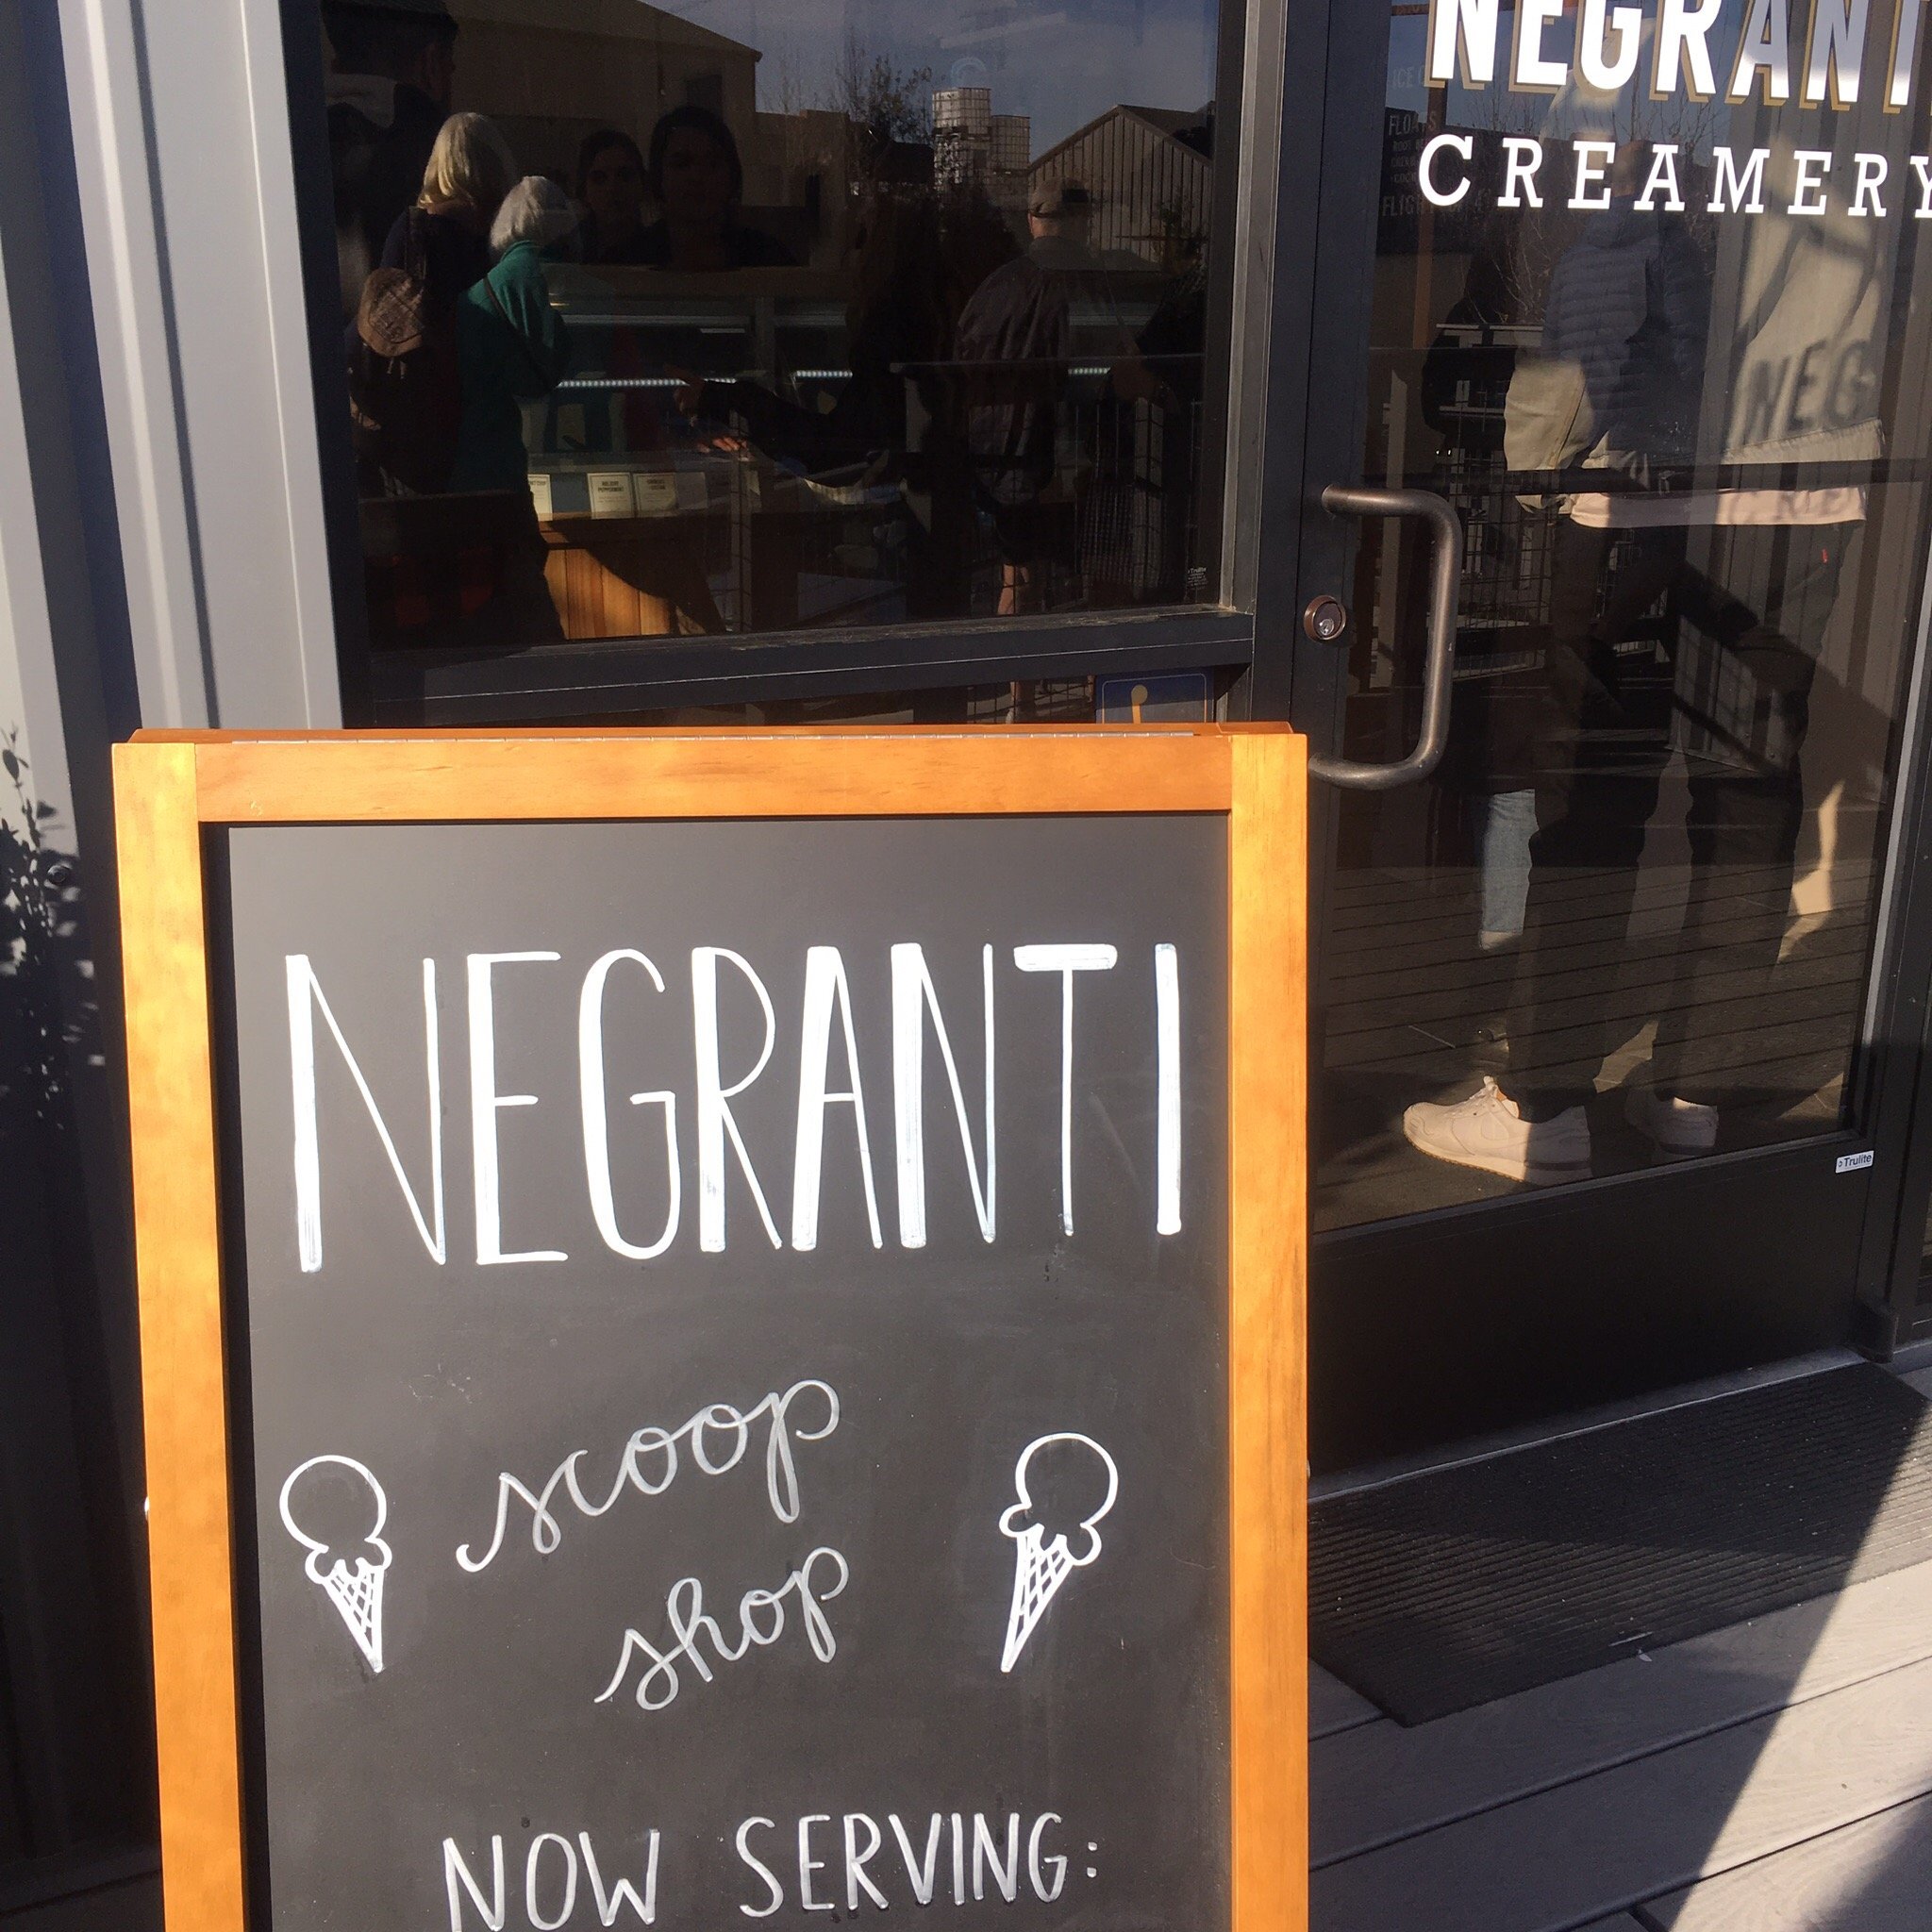 NEGRANTI
CREAMERY
NEG
Trulite
NEGRANTI
scoop
shop
NOW SERVING: